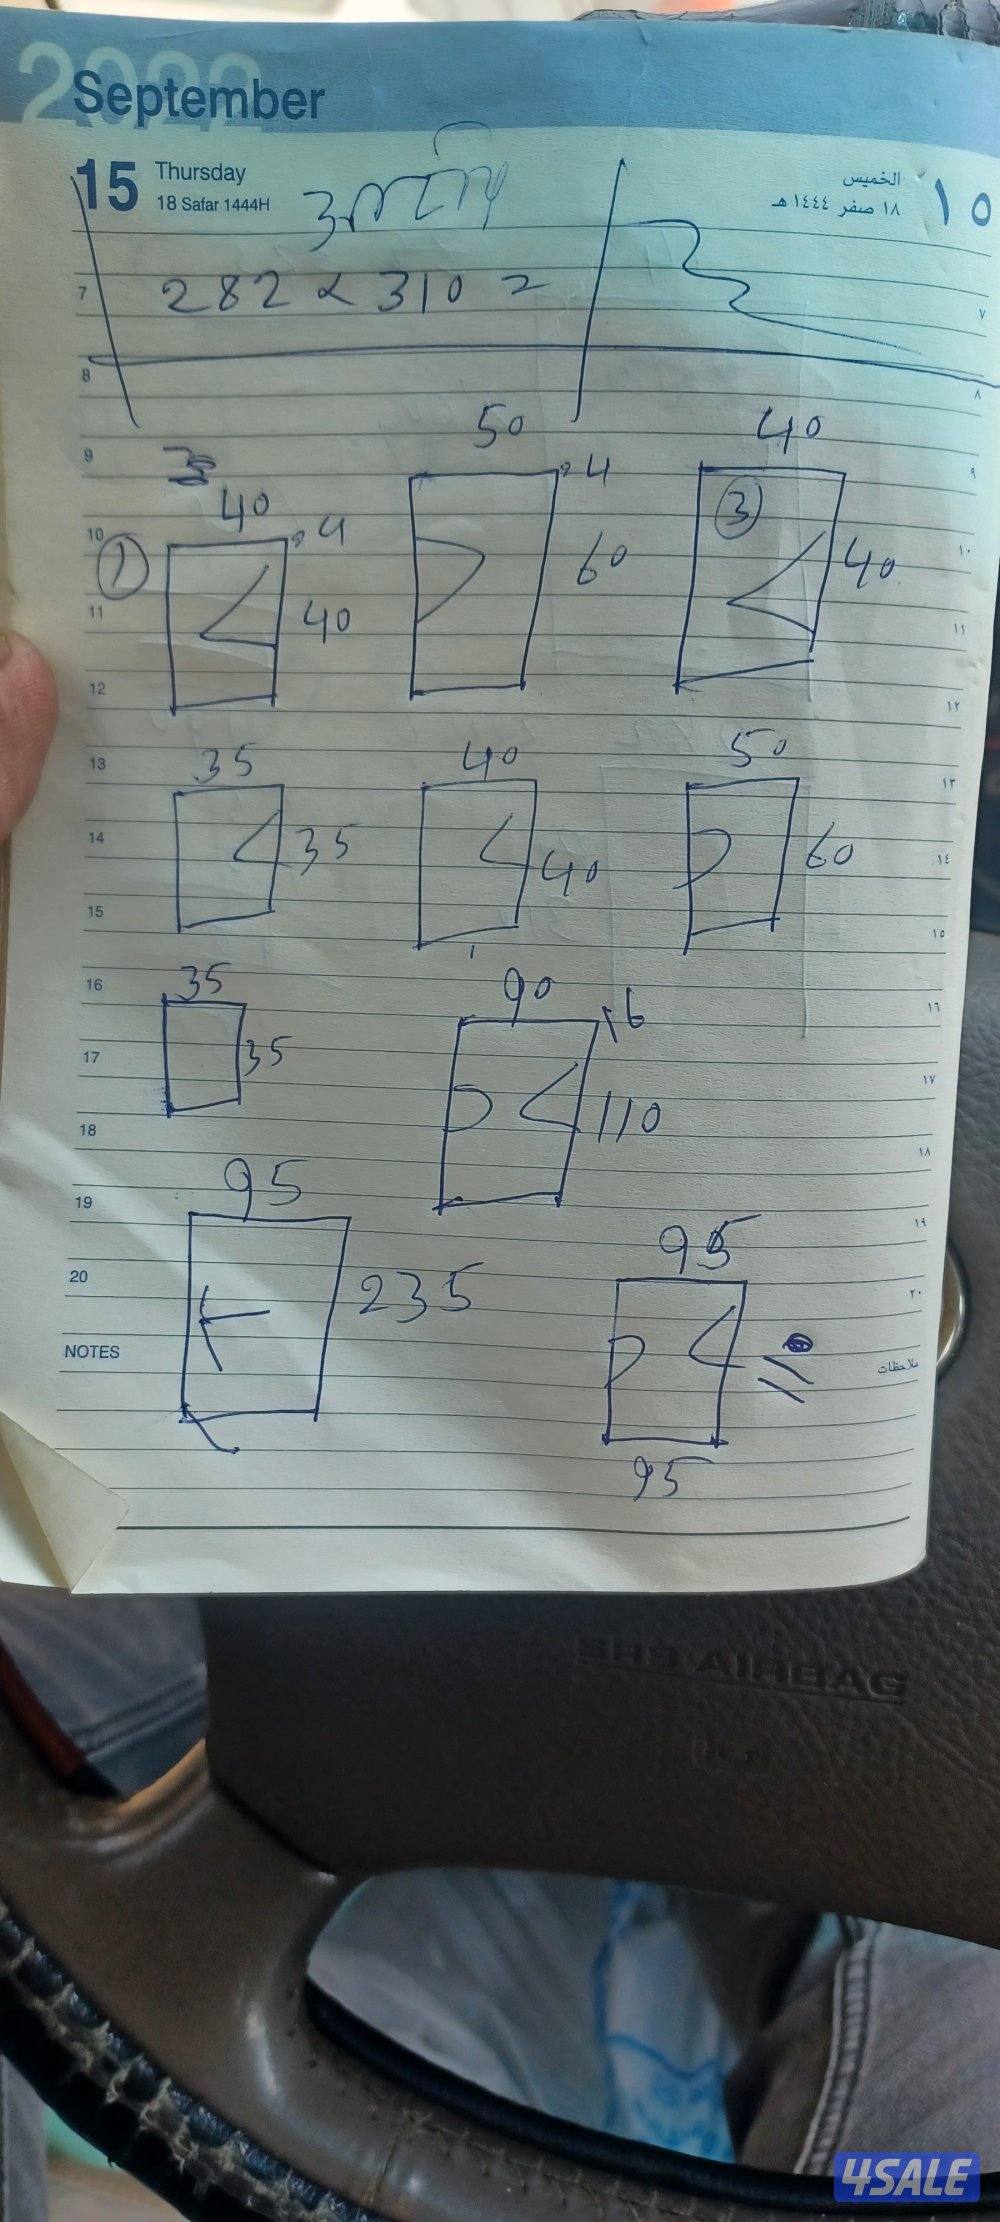 2022
September
15 Thursday
18 Safar 1444H
الخميس
١٨ صفر ١٤٤٤ هـ
١٥
7 282 × 310 = ٧
8 ٨
50 40
9 4 ٩
40
10 4 3 ١٠
1 60 40
11 40 ١١
12 ١٢
35 40 50
13 ١٣
14 35 40 60 ١٤
15 ١٥
35 90
16 16 ١٦
17 35 ١٧
110
18 ١٨
95
19 ١٩
95
20 235 ٢٠
NOTES ملاحظات
95
SRS AIRBAG
4SALE